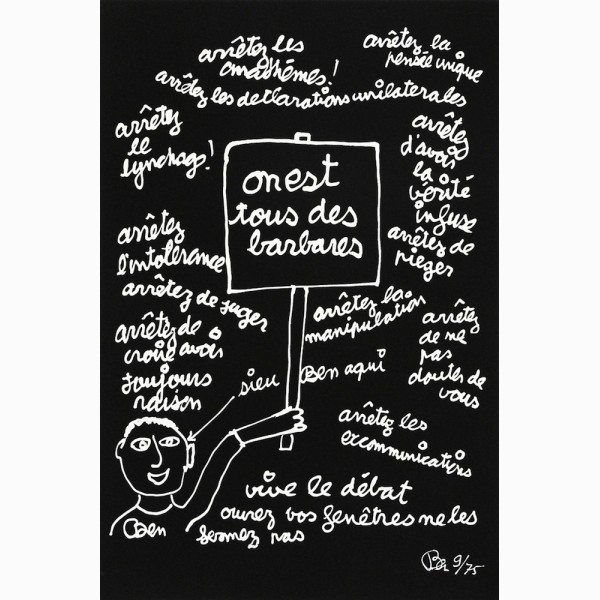 arrêtez les
anathèmes!
arrêtez la
pensée unique
arrêtez les déclarations unilaterales
arrêtez
le
lynchage!
arrêtez
d'avoir
la
vérité
infuse
on est
tous des
barbares
arrêtez
l'intolérance
arrêtez de
pieger
arrêtez de juger
arrêtez la
manipulation
arrêtez
de ne
pas
douter de
vous
arrêtez de
croire avoir
toujours
raison
sieu Ben aqui
arrêtez les
excommunications
vive le débat
ouvrez vos fenêtres ne les
fermez pas
Ben
Ben 9/75